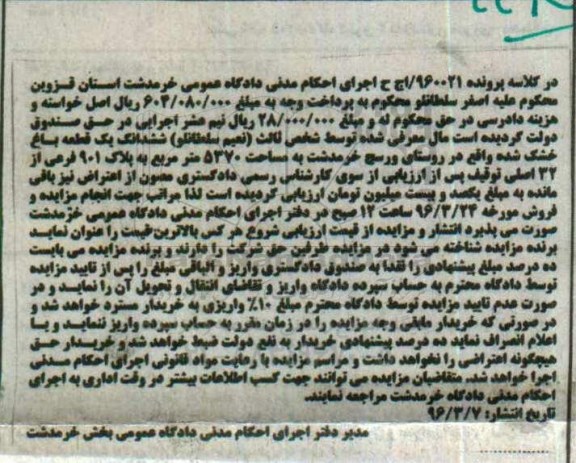 در کلاسه پرونده ۹۶۰۰۲۱/اج ح اجرای احکام مدنی دادگاه عمومی خرمدشت استان قزوین
محکوم علیه اصغر سلطانلو محکوم به پرداخت وجه به مبلغ ۶۰۴/۰۸۰/۰۰۰ ریال اصل خواسته و
هزینه دادرسی در حق محکوم له و مبلغ ۲۸/۰۰۰/۰۰۰ ریال نیم عشر اجرایی در حق صندوق
دولت گردیده است مال معرفی شده توسط شخص ثالث (نعیم سلطانلو) ششدانگ یک قطعه باغ
خشک شده واقع در روستای ورسج خرمدشت به مساحت ۵۳۷۰ متر مربع به پلاک ۹۰۱ فرعی از
۳۲ اصلی توقیف پس از ارزیابی از سوی کارشناس رسمی دادگستری مصون از اعتراض نیز باقی
مانده به مبلغ یکصد و بیست میلیون تومان ارزیابی گردیده است لذا مراتب جهت انجام مزایده و
فروش مورخه ۹۶/۳/۲۴ ساعت ۱۲ صبح در دفتر اجرای احکام مدنی دادگاه عمومی خرمدشت
صورت می پذیرد انتشار و مزایده از قیمت ارزیابی شروع هر کس بالاترین قیمت را عنوان نماید
برنده مزایده شناخته می شود در مزایده طرفین حق شرکت را دارند و برنده مزایده می بایست
ده درصد مبلغ پیشنهادی را نقدا به صندوق دادگستری واریز و الباقی مبلغ را پس از تایید مزایده
توسط دادگاه محترم به حساب سپرده دادگاه واریز و تقاضای انتقال و تحویل آن را نماید و در
صورت عدم تایید مزایده توسط دادگاه محترم مبلغ ۱۰٪ واریزی به خریدار مسترد خواهد شد و
در صورتی که خریدار مابقی وجه مزایده را در زمان مقرر به حساب سپرده واریز ننماید و یا
اعلام انصراف نماید ده درصد پیشنهادی خریدار به نفع دولت ضبط خواهد شد و خریدار حق
هیچگونه اعتراضی را نخواهد داشت و مراسم مزایده با رعایت مواد قانونی اجرای احکام مدنی
اجرا خواهد شد. متقاضیان مزایده می توانند جهت کسب اطلاعات بیشتر در وقت اداری به اجرای
احکام مدنی دادگاه خرمدشت مراجعه نمایند.
تاریخ انتشار: ۹۶/۳/۷
مدیر دفتر اجرای احکام مدنی دادگاه عمومی بخش خرمدشت